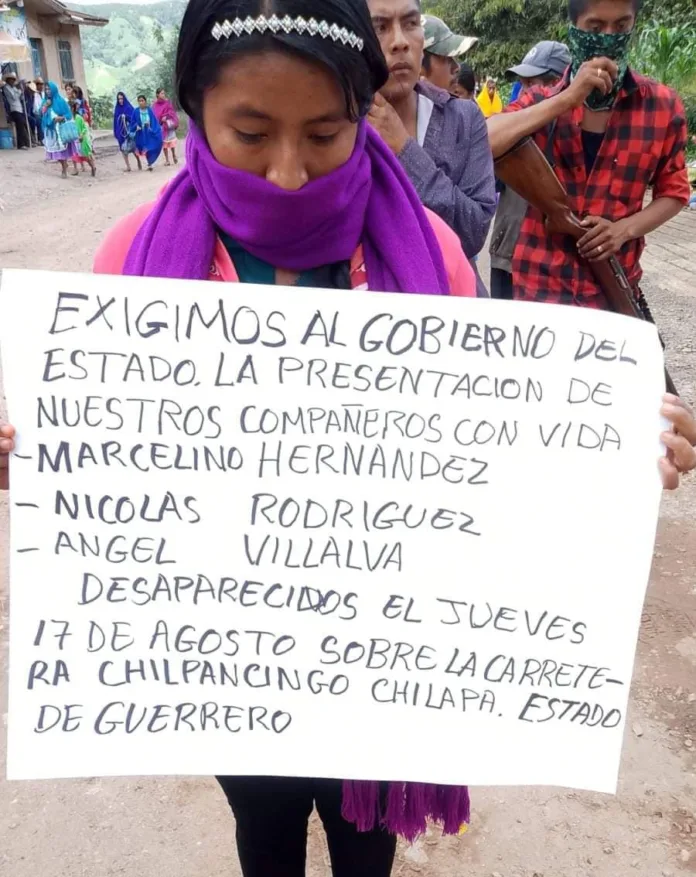 EXIGIMOS AL GOBIERNO DEL
ESTADO. LA PRESENTACION DE
NUESTROS COMPAÑEROS CON VIDA
-MARCELINO HERNANDEZ
- NICOLAS RODRIGUEZ
- ANGEL VILLALVA
DESAPARECIDOS EL JUEVES
17 DE AGOSTO SOBRE LA CARRETE-
RA CHILPANCINGO CHILAPA. ESTADO
DE GUERRERO